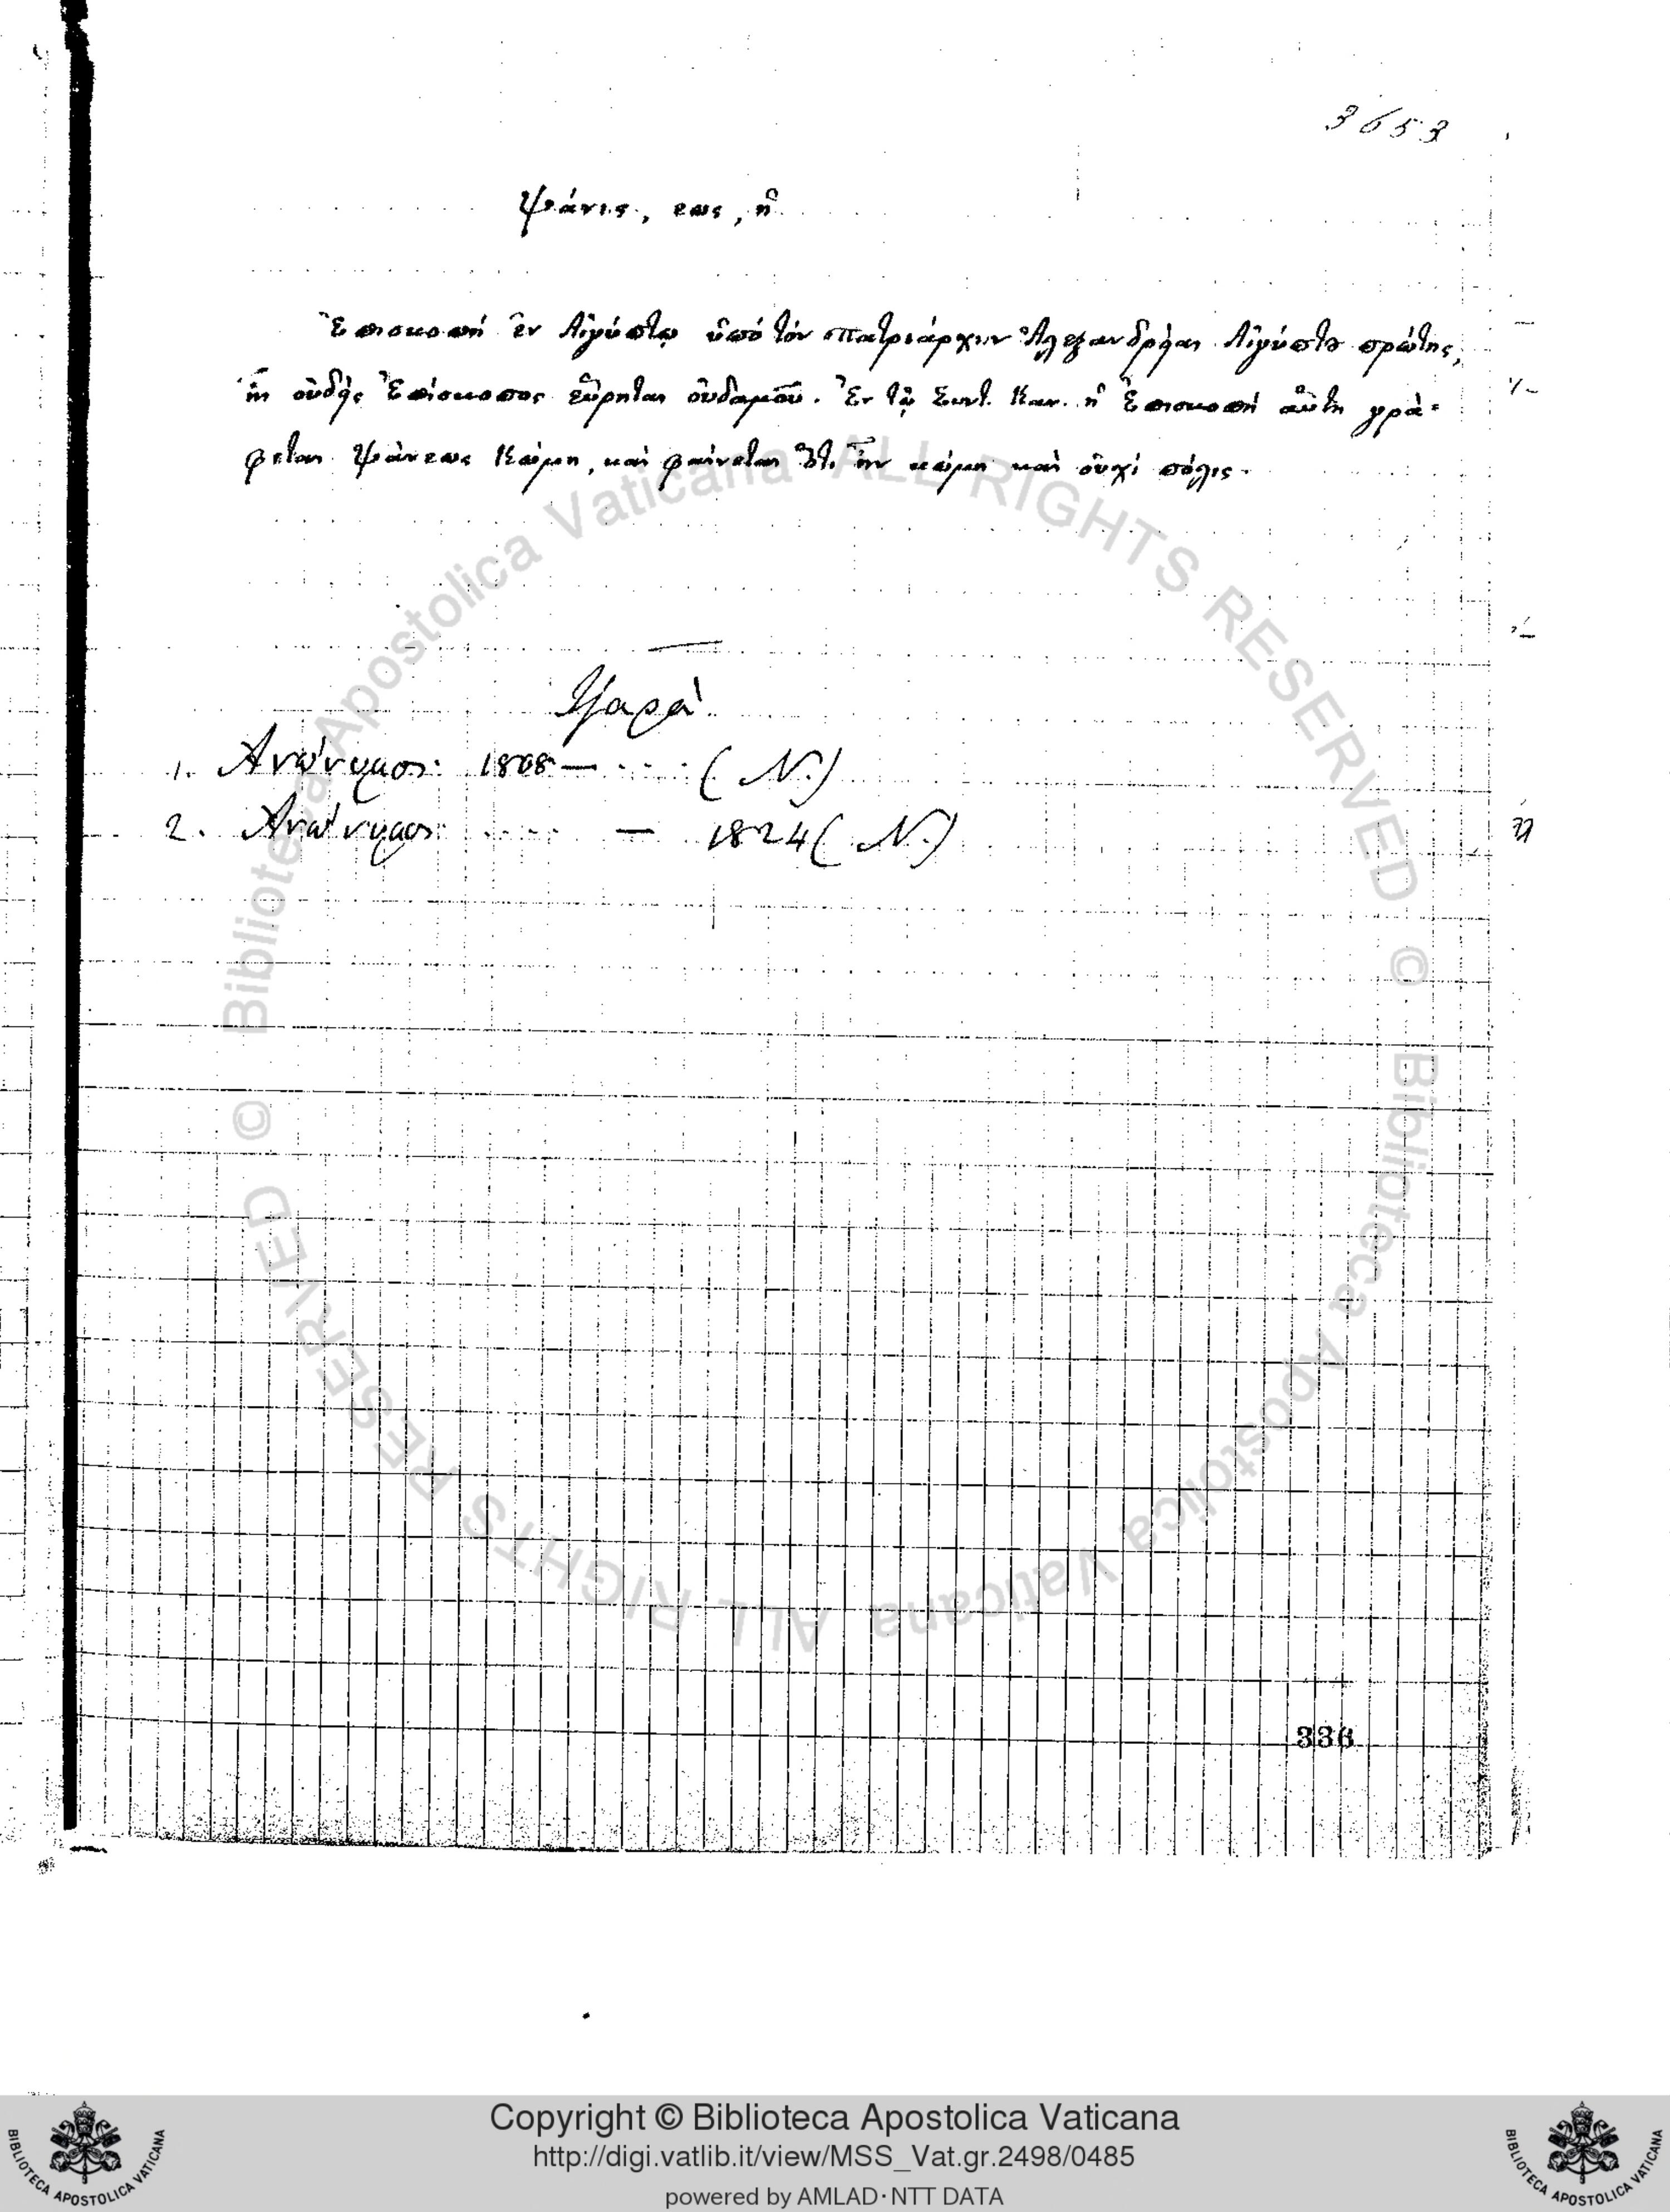 3653
Ψάνις, εως, ἡ
Ἐπισκοπή ἐν Αἰγύπτῳ ὑπό τόν πατριάρχην Ἀλεξανδρείας Αἰγύπτου πρώτης,
ἧς οὐδείς Ἐπίσκοπος εὕρηται οὐδαμοῦ. Ἐν τῷ Συντ. Καν. ἡ Ἐπισκοπή αὕτη γρά-
φεται Ψάνεως Κώμη, καί φαίνεται ὅτι ἦν κώμη καί οὐχί πόλις.
Ψαρά
1. Ἀνώνυμος 1808 — .... (N.)
2. Ἀνώνυμος .... — 1824 (N.)
336
© Biblioteca Apostolica Vaticana ALL RIGHTS RESERVED
© Biblioteca Apostolica Vaticana ALL RIGHTS RESERVED
Copyright © Biblioteca Apostolica Vaticana
http://digi.vatlib.it/view/MSS_Vat.gr.2498/0485
powered by AMLAD·NTT DATA
BIBLIOTECA APOSTOLICA VATICANA
BIBLIOTECA APOSTOLICA VATICANA